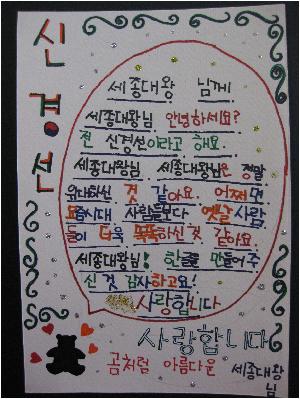 신경선
세종대왕 님께
세종대왕님 안녕하세요?
전 신경선이라고 해요.
세종대왕님 세종대왕님은 정말
위대하신 것 같아요. 어쩌면
요즘시대 사람들보다 옛날 사람
들이 더욱 똑똑하신 것 같아요.
세종대왕님! 한글을 만들어 주
신 것 감사하고요!
사랑합니다
사랑합니다
곰처럼 아름다운 세종대왕
님